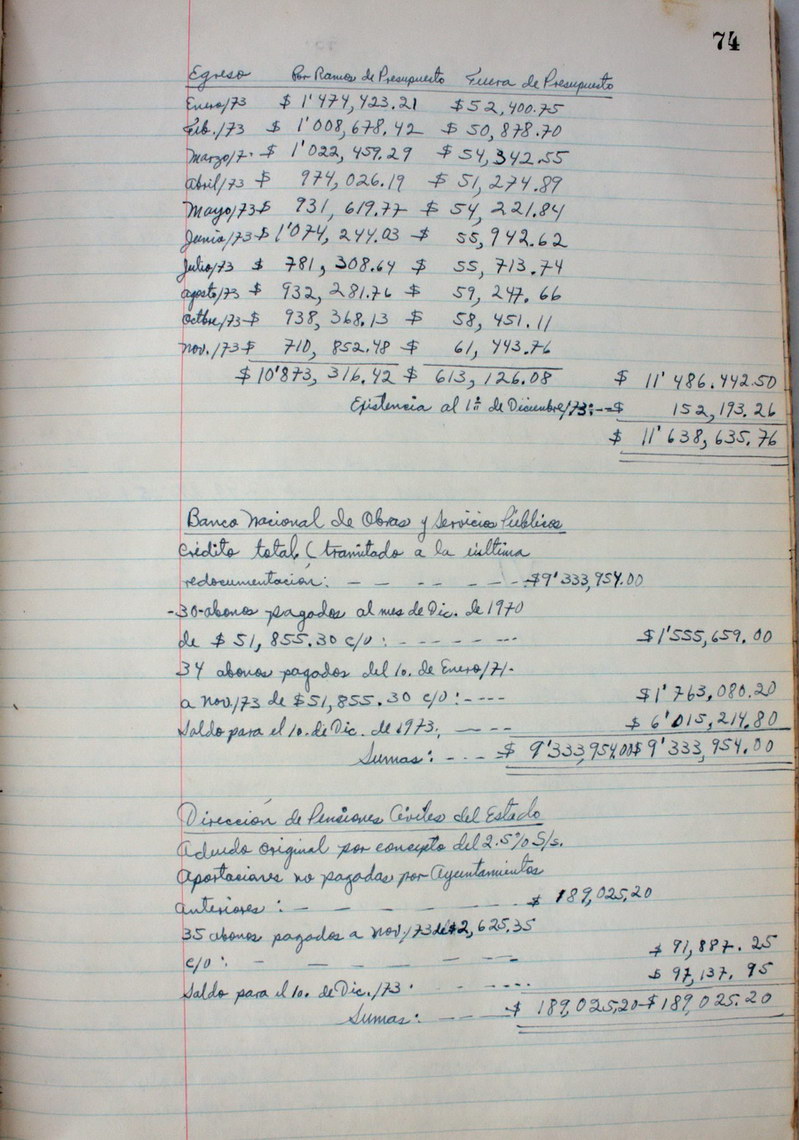 74
Egreso Por Ramos de Presupuesto Fuera de Presupuesto
Enero/73 $ 1'474,423.21 $52,400.75
Feb./73 $ 1'008,678.42 $ 50,878.70
Marzo/7. $ 1'022,459.29 $54,342.55
Abril/73 $ 974,026.19 $ 51,274.89
Mayo/73 $ 931,619.77 $ 54,221.84
Junio/73 $ 1'074,244.03 $ 55,942.62
Julio/73 $ 781,308.64 $ 55,713.74
Agosto/73 $ 932,281.76 $ 59,247.66
Octbre/73 $ 938,368.13 $ 58,451.11
Nov./73 $ 710,852.48 $ 61,443.76
$ 10'873,316.42 $ 613,126.08 $ 11'486.442.50
Existencia al 1º de Diciembre/73:--$ 152,193.26
$ 11'638,635.76
Banco Nacional de Obras y Servicios Públicos
Crédito total (tramitado a la última
redocumentación: - - - - - - $9'333,954.00
-30-abonos pagados al mes de Dic. de 1970
de $ 51,855.30 c/u: - - - - - - $1'555,659.00
34 abonos pagados del 1o. de Enero/71-
a Nov/73 de $51,855.30 c/u: - - - - $1'763,080.20
Saldo para el 1o. de Dic. de 1973. - - - $ 6'015,214.80
Sumas: - - - $ 9'333,954.00 $ 9'333,954.00
Dirección de Pensiones Civiles del Estado
Aduido original por concepto del 2.5% S/s.
Aportaciones no pagadas por Ayuntamientos
anteriores: - - - - - - $ 189,025.20
35 abonos pagados a Nov./73 de $2,625.35
c/u: - - - - - - $ 91,887.25
Saldo para el 1o. de Dic./73. - - - - $ 97,137.95
Sumas: - - - - $ 189,025.20 - $ 189,025.20